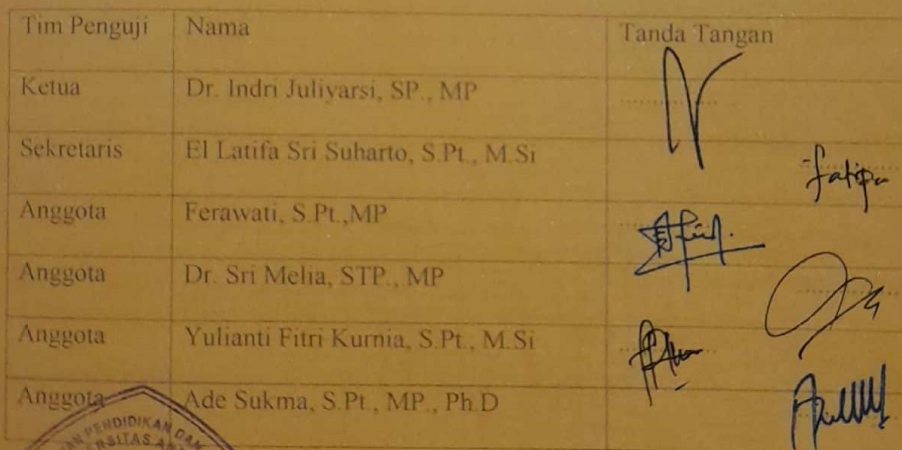 Tim Penguji Nama Tanda Tangan
Ketua Dr. Indri Juliyarsi, SP., MP
Sekretaris El Latifa Sri Suharto, S.Pt., M.Si
Anggota Ferawati, S.Pt.,MP
Anggota Dr. Sri Melia, STP., MP
Anggota Yulianti Fitri Kurnia, S.Pt., M.Si
Anggota Ade Sukma, S.Pt., MP., Ph.D
PENDIDIKAN DA